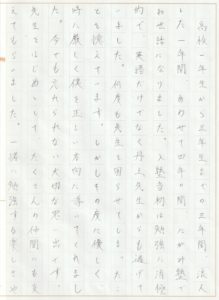 高校一年生からの三年間、浪人
した一年間、あわせて四年の間、にがみ塾で
お世話になりました。入塾当初は勉強に消極
的で、英語だけでなく丹上先生からも逃げて
いました。何度も先生を困らせてしまったこ
とを憶えています。しかしその度に優しく、
時に厳しく僕を正しい方向に導いてくれまし
た。今でも忘れられない大切な思い出です。
先生をはじめとして、たくさんの仲間にも支
えてもらいました。一緒に勉強する楽しさや